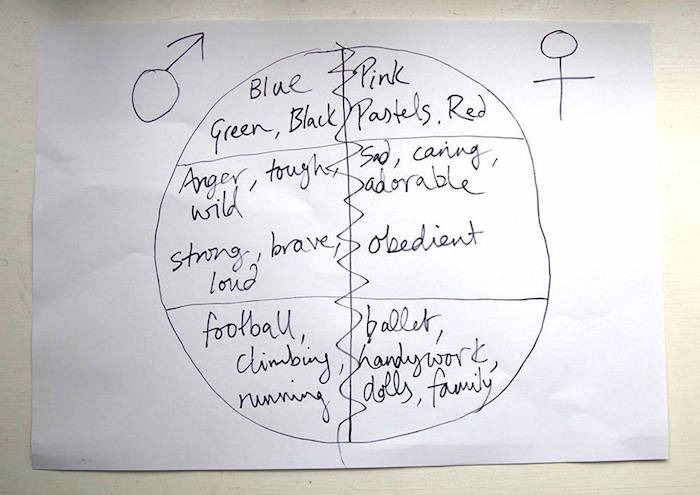 Blue
Green, Black
Anger, tough,
wild
strong, brave,
loud
football,
climbing,
running
Pink
Pastels, Red
Sad, caring,
adorable
obedient
ballet,
handywork,
dolls, family